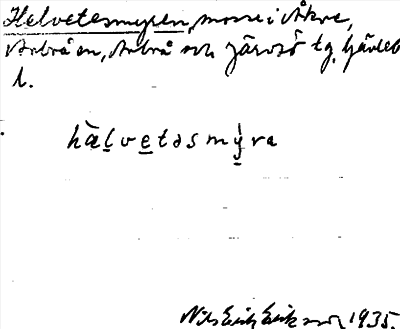 Helvetesmyren, mosse i Åkre,
Arbrå sn, Arbrå och Järvsö tg, Gävleb.
l.
hàl̲ve̲təsmỳ̲ra
Nils Erik Eriksson 1935.